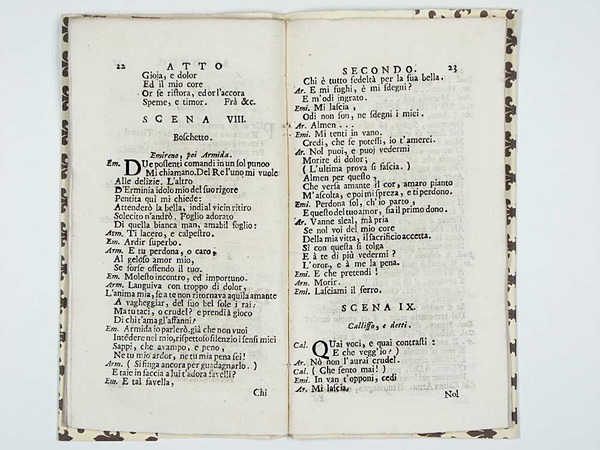 22 ATTO
Gioja, e dolor
Ed il mio core
Or se ristora, ed or l'accora
Speme, e timor. Frà &c.
SCENA VIII.
Boschetto.
Emireno, poi Armida.
Em. Due posenti comandi in un sol punoo
Mi chiamano. Del Re l'uno mi vuole
Alle delizie. L'altro
D'Erminia idolo mio del suo rigore
Pentita quì mi chiede:
Attenderò la bella, indi al vicin ritiro
Solecito n'andrò. Foglio adorato
Di quella bianca man, amabil foglio:
Arm. Ti lacero, e calpestro.
Em. Ardir superbo.
Arm. E tu perdona, o caro,
Al geloso amor mio,
Se forse offendo il tuo.
Em. Molesto incontro, ed importuno.
Arm. Languiva con troppo di dolor,
L'anima mia, se a te non ritornava aquila amante
A vagheggiar, del suo bel sole i rai:
Ma tu taci, o crudel? e prendi à gioco
Di chi t'ama gl'affanni?
Em. Armida io parlerò, già che non vuoi
Intédere nel mio, rispettoso silenzio i sensi miei
Sappi, che avampo, e peno,
Ne tu mio ardor, ne tu mia pena sei!
Arm. ( Si finga ancora per guadagnarlo. )
E taie in faccia a lui t'adora favelli?
Em. E tal favella,
Chi
SECONDO. 23
Chi è tutto fedeltà per la sua bella.
Ar. E mi fughi, è mi sdegni?
E m'odi ingrato.
Emi. Mi lascia,
Odi non son, ne sdegni i miei.
Ar. Almen . . .
Emi. Mi tenti in vano.
Credi, che se potessi, io t'amerei.
Ar. Nol puoi, e puoj vedermi
Morire di dolor;
( L'ultima prova si fascia. )
Almen per questo,
Che versa amante il cor, amaro pianto
M'ascolta, e poi mi spreza, e ti perdono.
Emi. Perdona sol, ch'io parto,
E questo del tuo amor, sia il primo dono.
Ar. Vanne sleal, mà pria
Se nol voi del mio core
Della mia vitta, il sacrificio accetta.
Sì con questa si tolga
E à te di più vedermi?
L'oror, e à me la pena.
Emi. E che pretendi!
Arn. Morir.
Emi. Lasciami il ferro.
SCENA IX.
Callisso, e detti.
Cal. Quai voci, e quai contrasti:
E che vegg'io? )
Ar. Nò non l'aurai crudel.
Cal. ( Che sento mai! )
Emi. In van t'opponi, cedi
Ar. Mi lascia.
Nol